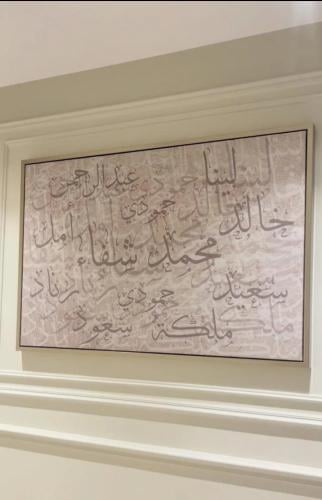 لينا عبدالرحمن
حمودي
خالد أمل
محمد شفاء
سعيد زياد
حمودي
ملكة سعود